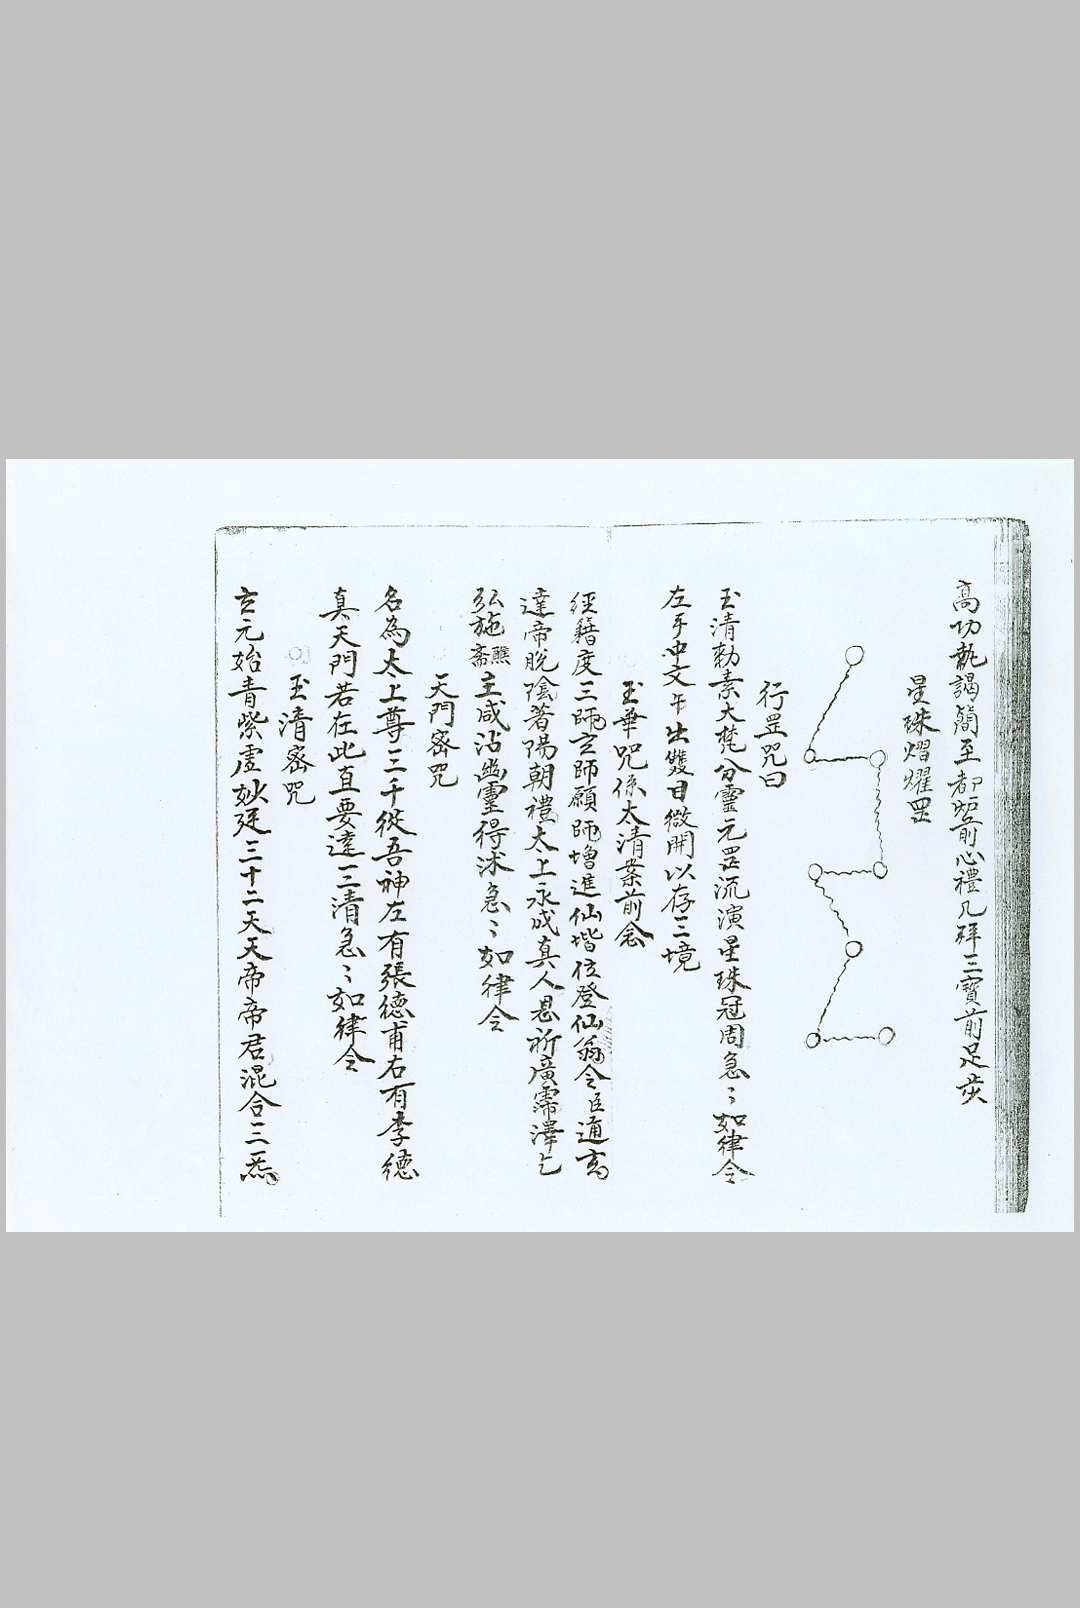 高功執謁簡至都壇前心禮九拜三寶前足炭
星珠熠耀罡
行罡咒曰
玉清勅素大梵分靈元罡流演星珠冠周急〻如律令
左手中文午出雙目微開以存三境
玉華咒係太清案前念
經籍度三師玄師願師增進仙堦位登仙翁令臣道玄
達帝脫陰著陽朝禮太上永成真人恳祈廣霈澤乞
弘施醮齋主咸沾幽靈得沭急〻如律令
天門密咒
名為太上尊三千從吾神左有張德甫右有李德
真天門若在此直要達三清急〻如律令
玉清密咒
玄元始青紫虛妙廷三十二天天帝帝君混合三炁